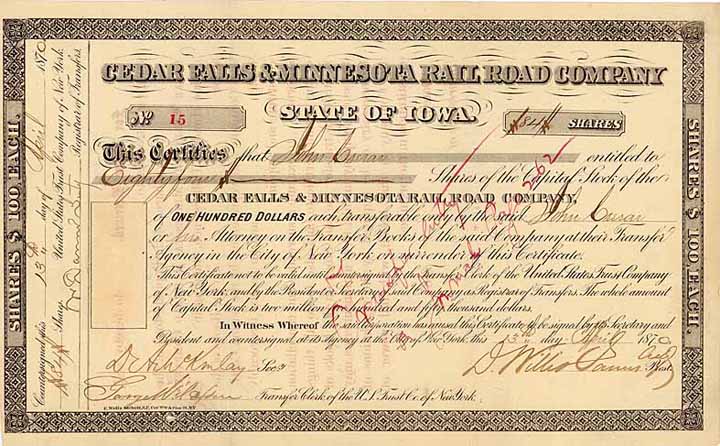 CEDAR FALLS & MINNESOTA RAIL ROAD COMPANY
STATE OF IOWA.
No 15
84 SHARES
This Certifies that John Curar entitled to
Eighty four Shares of the Capital Stock of the
CEDAR FALLS & MINNESOTA RAIL ROAD COMPANY,
of ONE HUNDRED DOLLARS each, transferable only by the said John Curar
or his Attorney on the Transfer Books of the said Company at their Transfer
Agency in the City of New York on surrender of this Certificate.
This Certificate not to be valid until countersigned by the Transfer Clerk of the United States Trust Company
of New York, and by the President or Secretary of said Company as Registrar of Transfers. The whole amount
of Capital Stock is two million hundred and fifty thousand dollars.
In Witness Whereof the said corporation has caused this Certificate to be signed by its Secretary and
President and countersigned at its Agency at the City of New York this 13th day April 1870
Secy
D. Willis James
Prest
George
Transfer Clerk of the U.S. Trust Co. of New York.
SHARES $ 100 EACH.
SHARES $ 100 EACH.
Countersigned this 13 day of April 1870
84 Shares
United States Trust Company of New York.
Registrar of Transfers.
262